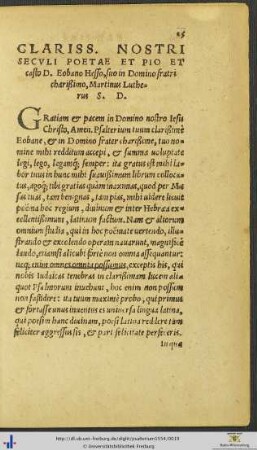 15
CLARISS. NOSTRI
SECVLI POETAE ET PIO ET
casto D. Eobano Hesso, suo in Domino fratri
charissimo, Martinus Luthe-
rus S. D.
GRatiam et pacem in Domino nostro Iesu
Christo, Amen. Psalterium tuum clarissime
Eobane, & in Domino frater charissime, tuo no-
mine mihi redditum accepi, & summa uoluptate
legi, lego, legamq́; semper: ita gratus est mihi la-
bor tuus in hunc mihi suauissimum librum colloca-
tus, agoq́; tibi gratias quàm maximas, quod per Mu-
sas tuas, tam benignas, tam pias, mihi uidere licuit
poëma hoc regium, diuinum & inter Hebræa ex-
cellentissimum, latinum factum. Nam & aliorum
omnium studia, qui in hoc poëmate uertendo, illu-
strando & excolendo operam nauarunt, magnificè
laudo, etiamsi alicubi fortè non omnia assequantur:
neq; enim omnes omnia possumus, exceptis his, qui
nobis Iudaicas tenebras in clarissimam lucem aliq́
quot Psalmorum inuehunt, hoc enim non possum
non fastidire: ita tuum maximè probo, qui primus
& fortasse unus inuentus es uniuersa lingua latina,
qui poësin hanc diuinam, poësi Latina reddere tam
feliciter aggressus sis, & pari felicitate perfeceris.
In qua
http://dl.ub.uni-freiburg.de/diglit/psalterium1538/0019
© Universitätsbibliothek Freiburg